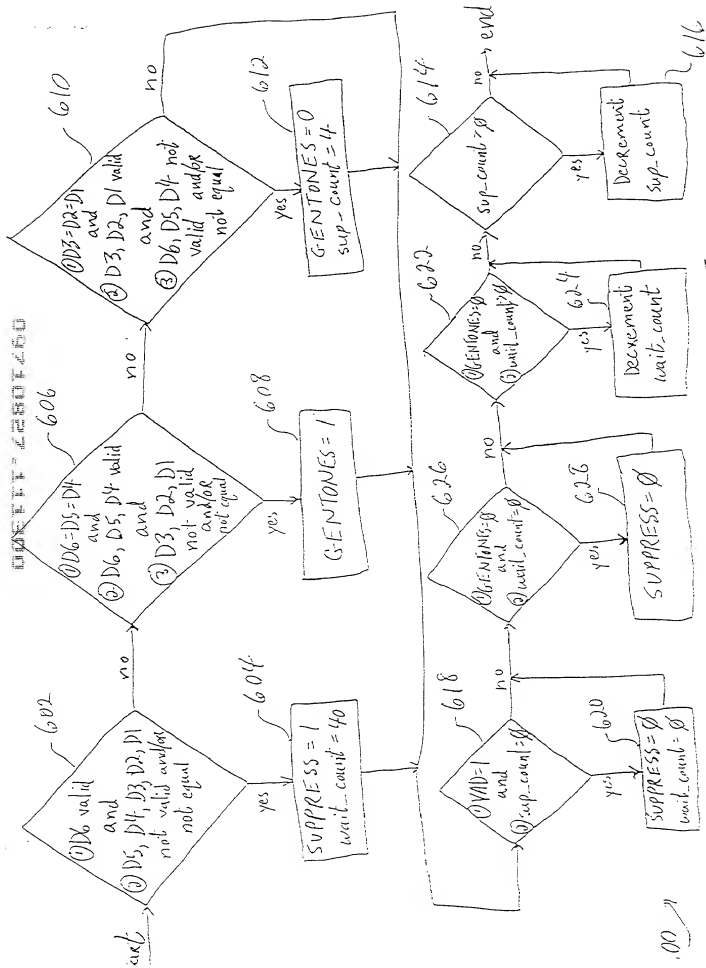 602
① D6 valid
and
② D5, D4, D3, D2, D1
not valid and/or
not equal
yes
604
SUPPRESS = 1
wait_count = 40
no
606
① D6=D5=D4
and
② D6, D5, D4 valid
and
③ D3, D2, D1
not valid
and/OR
not equal
yes
608
GENTONES = 1
no
610
① D3=D2=D1
and
② D3, D2, D1 valid
and
③ D6, D5, D4 not
valid and/OR
not equal
yes
612
GENTONES = 0
sup_count = 4
no
618
① VAD=1
and
② sup_count=Ø
yes
620
SUPPRESS = Ø
wait_count = Ø
no
626
① GENTONES=Ø
and
② wait_count=Ø
yes
628
SUPPRESS = Ø
no
622
① GENTONES=Ø
and
② wait_count>Ø
yes
624
Decrement
wait_count
no
614
sup_count>Ø
yes
616
Decrement
sup_count
no
end